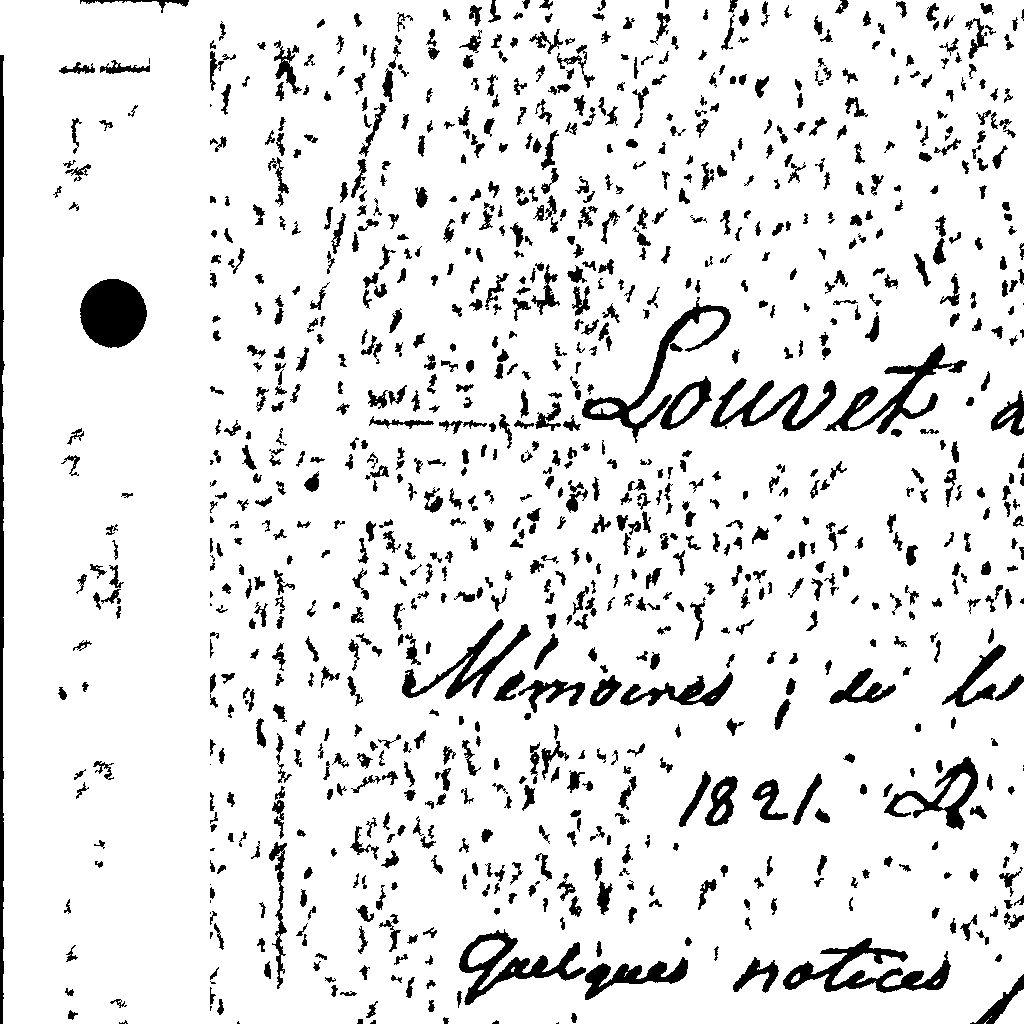 Louvet d
Mémoires, de la
1821. D.
Quelques notices